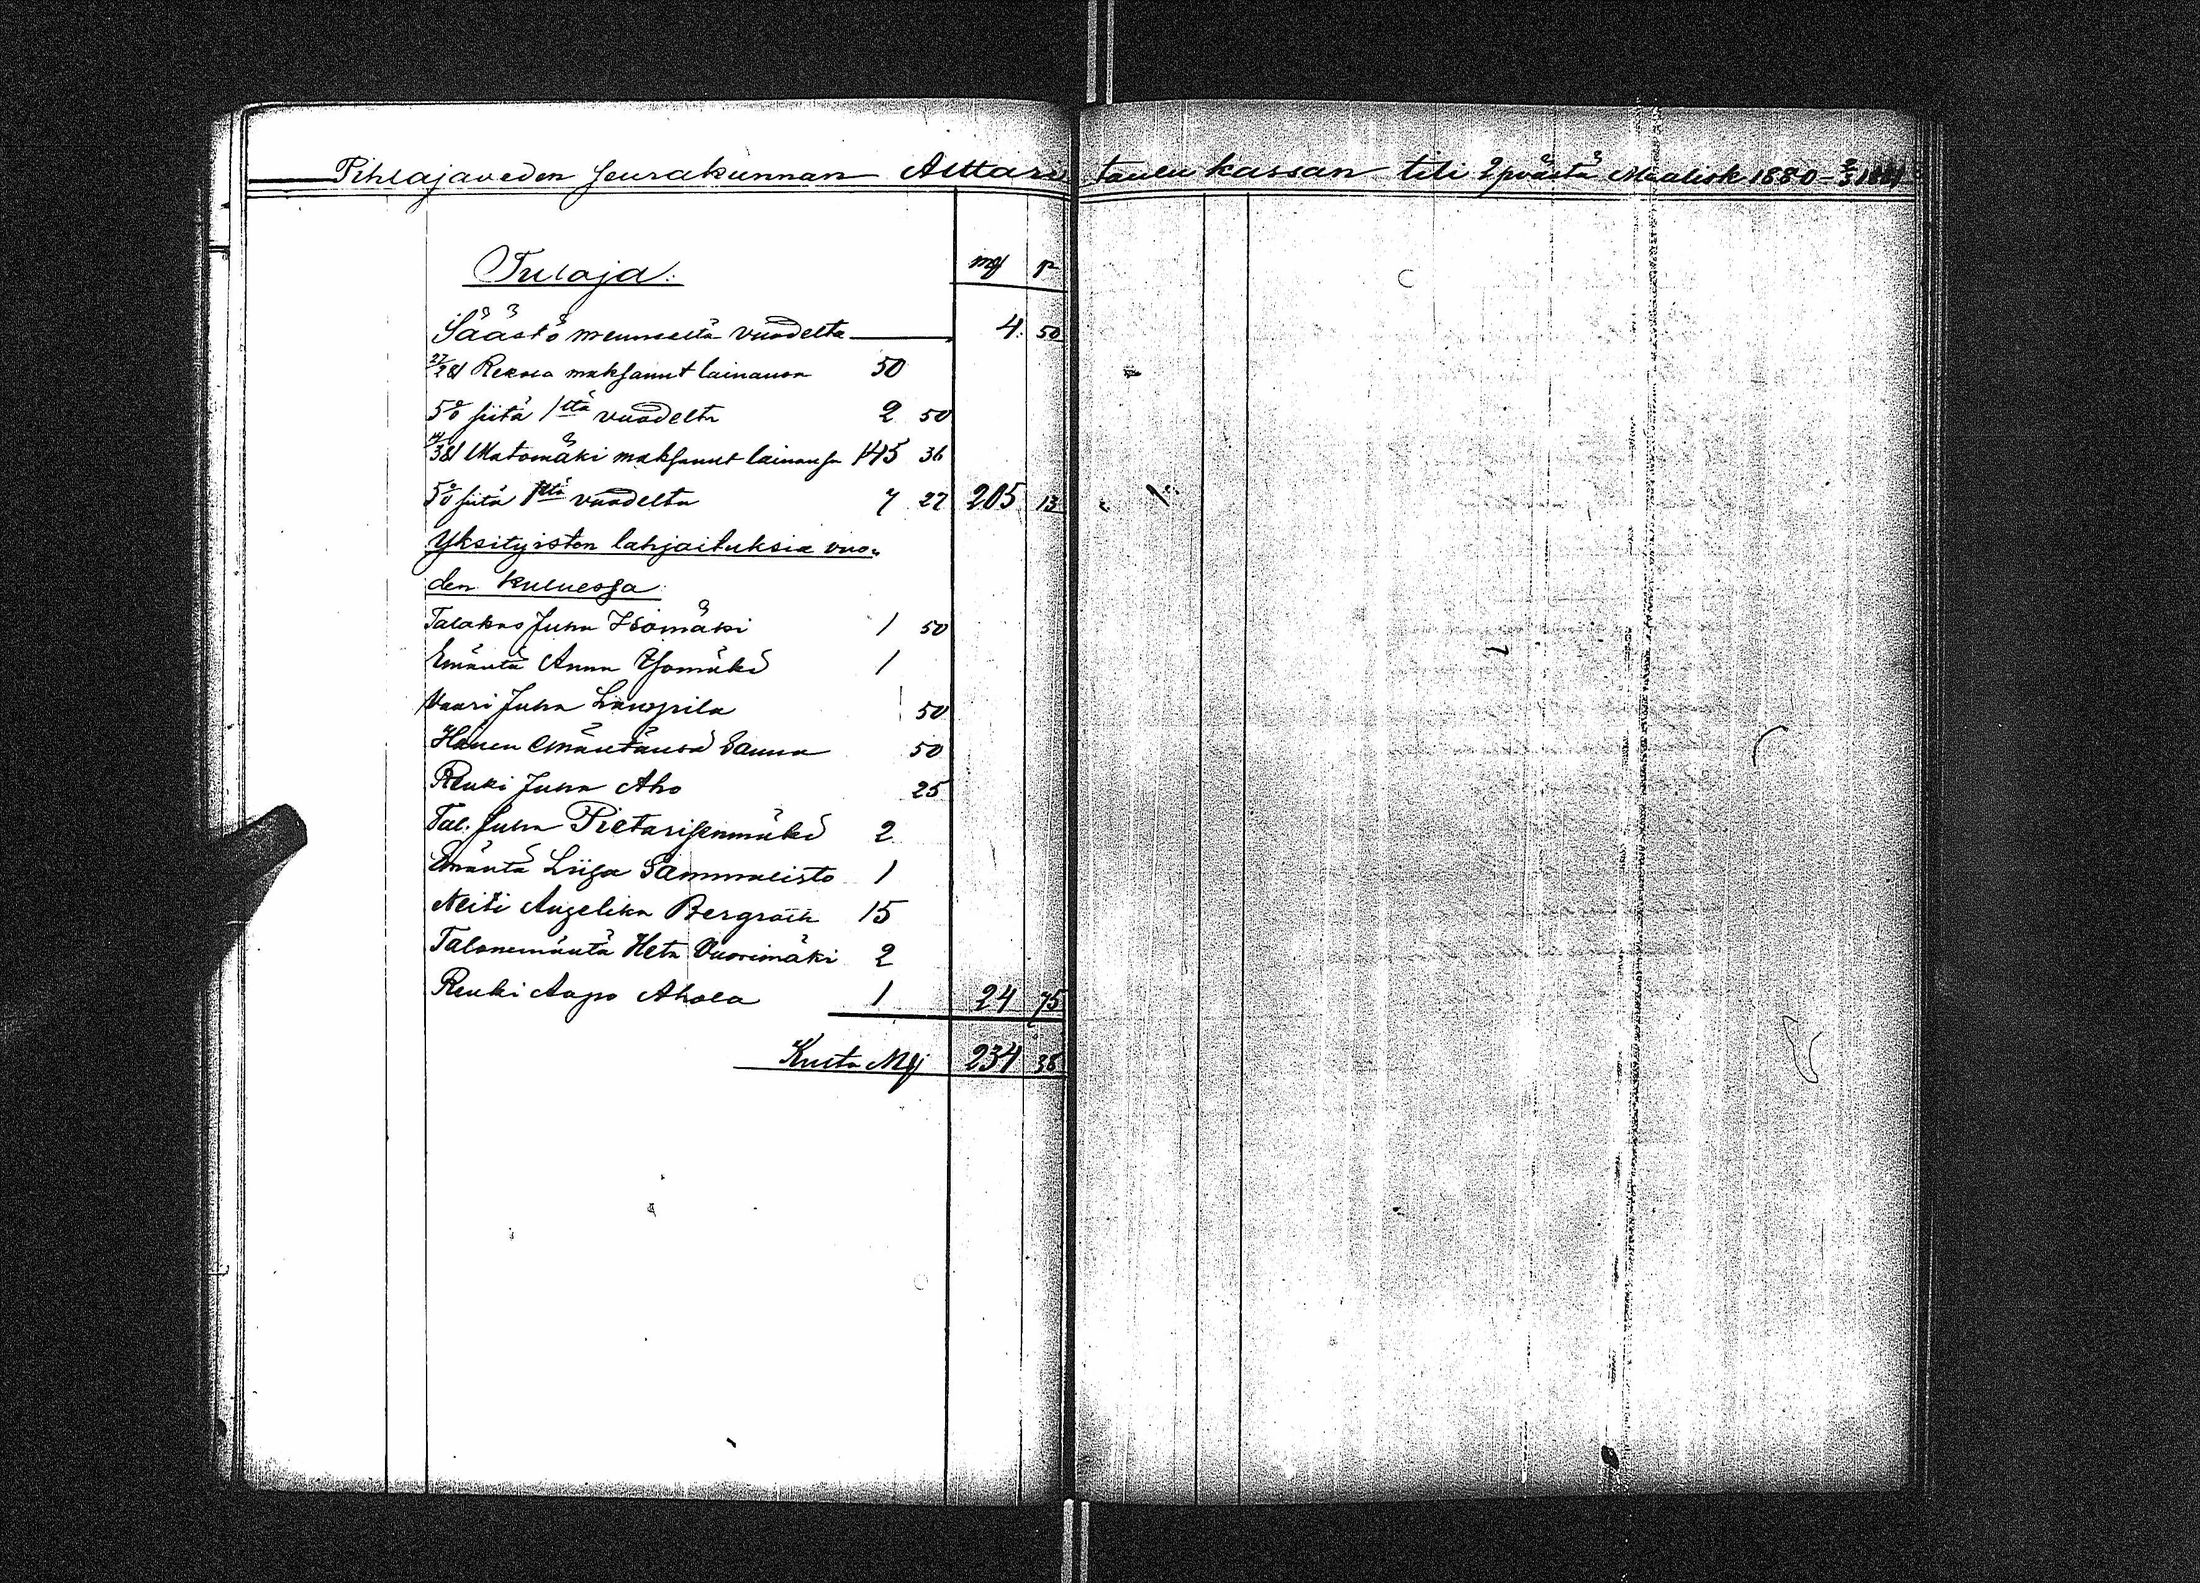 Pihlajaveden seurakunnan Alttari taulu kassan tili 2 p:västä Maalisk 1880 – 2/3 1881
Tuloja: mg p
Säästö menneeltä vuodelta 4. 50
27/2 81 Rekola maksanut lainansa 50
5% siitä 1ltä vuodelta 2 50
/3 81 Matomäki maksanut lainansa 145 36
5% siitä 1ltä vuodelta 7 27 205 13
Yksityisten lahjoituksia vuo-
den kuluessa
Talokas Juha Isomäki 1 50
Emäntä Anna Isomäki 1
Vaari Juha Lampila 50
Hänen emäntänsä Sanna 50
Renki Juha Aho 25
Tal. Juha Pietarisenmäki 2
Emäntä Liisa Sammalisto 1
Neiti Angelika Bergroth 15
Talonemäntä Heta Vuorimäki 2
Renki Aapo Ahola 1 24 75
Summa Mg 234 38